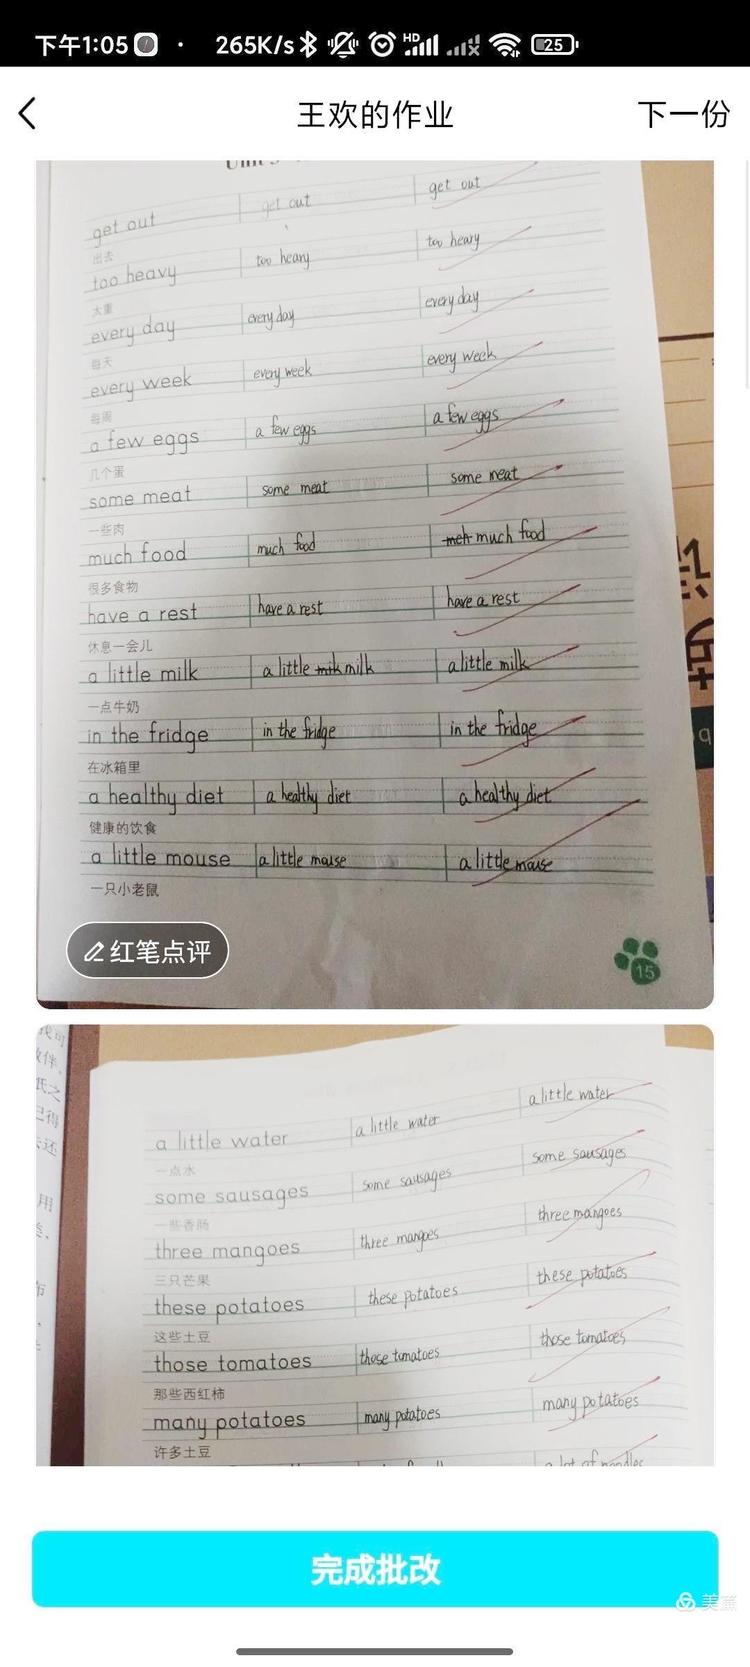 下午1:05 · 265K/s HD 25
王欢的作业 下一份
get out get out get out
出去
too heavy too heavy too heavy
太重
every day every day every day
每天
every week every week every week
每周
a few eggs a few eggs a few eggs
几个蛋
some meat some meat some meat
一些肉
much food much food much food
很多食物
have a rest have a rest have a rest
休息一会儿
a little milk a little mik milk a little milk
一点牛奶
in the fridge in the fridge in the fridge
在冰箱里
a healthy diet a healthy diet a healthy diet
健康的饮食
a little mouse a little mouse a little mouse
一只小老鼠
红笔点评
15
a little water a little water a little water
一点水
some sausages some sausages some sausages
一些香肠
three mangoes three mangoes three mangoes
三只芒果
these potatoes these potatoes these potatoes
这些土豆
those tomatoes those tomatoes those tomatoes
那些西红柿
many potatoes many potatoes many potatoes
许多土豆
a lot of noodles
完成批改